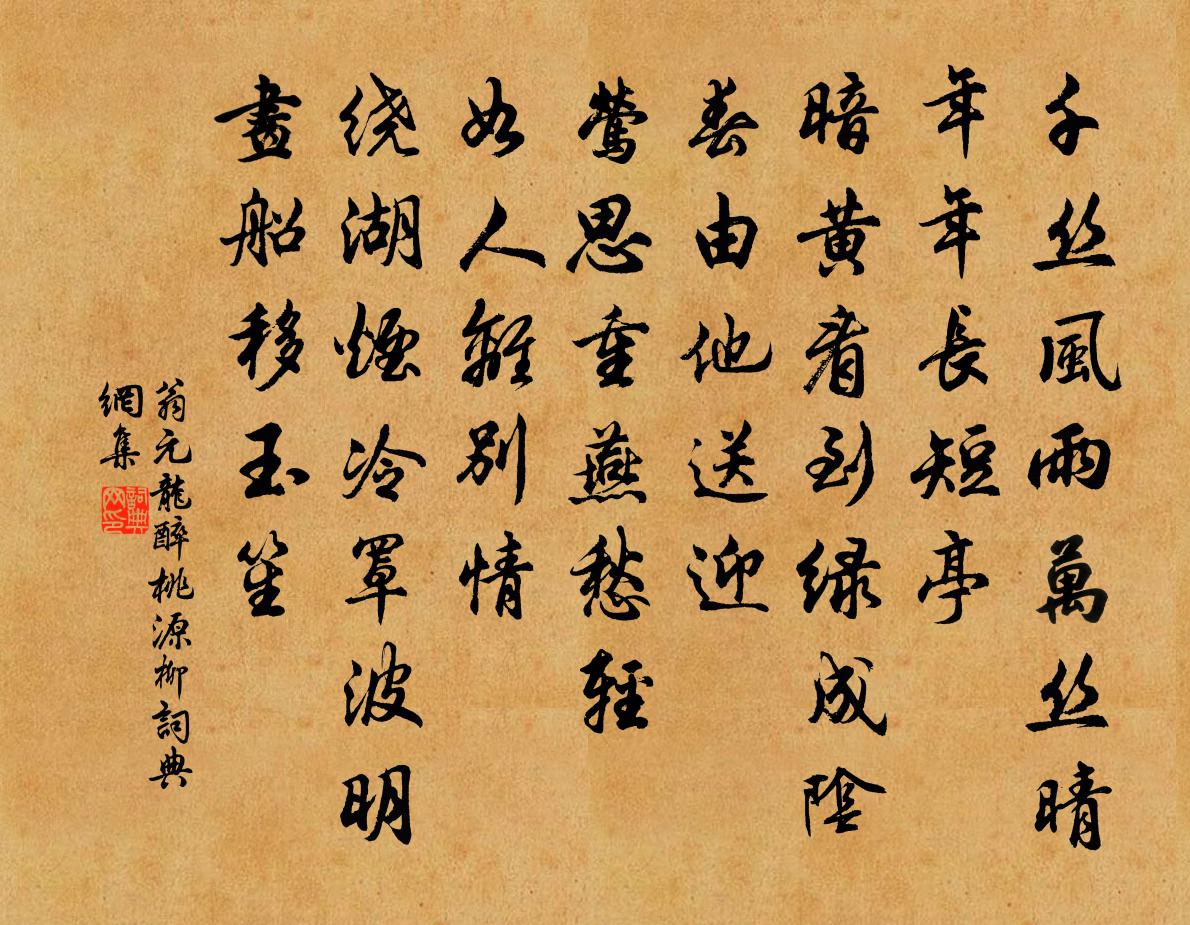 千丝風雨萬丝晴
年年長短亭
暗黄看到绿成陰
春由他送迎
莺思重燕愁轻
如人離别情
绕湖煙冷罩波明
畫船移玉笙
翁元龍醉桃源柳詞典
網集
詞典网印